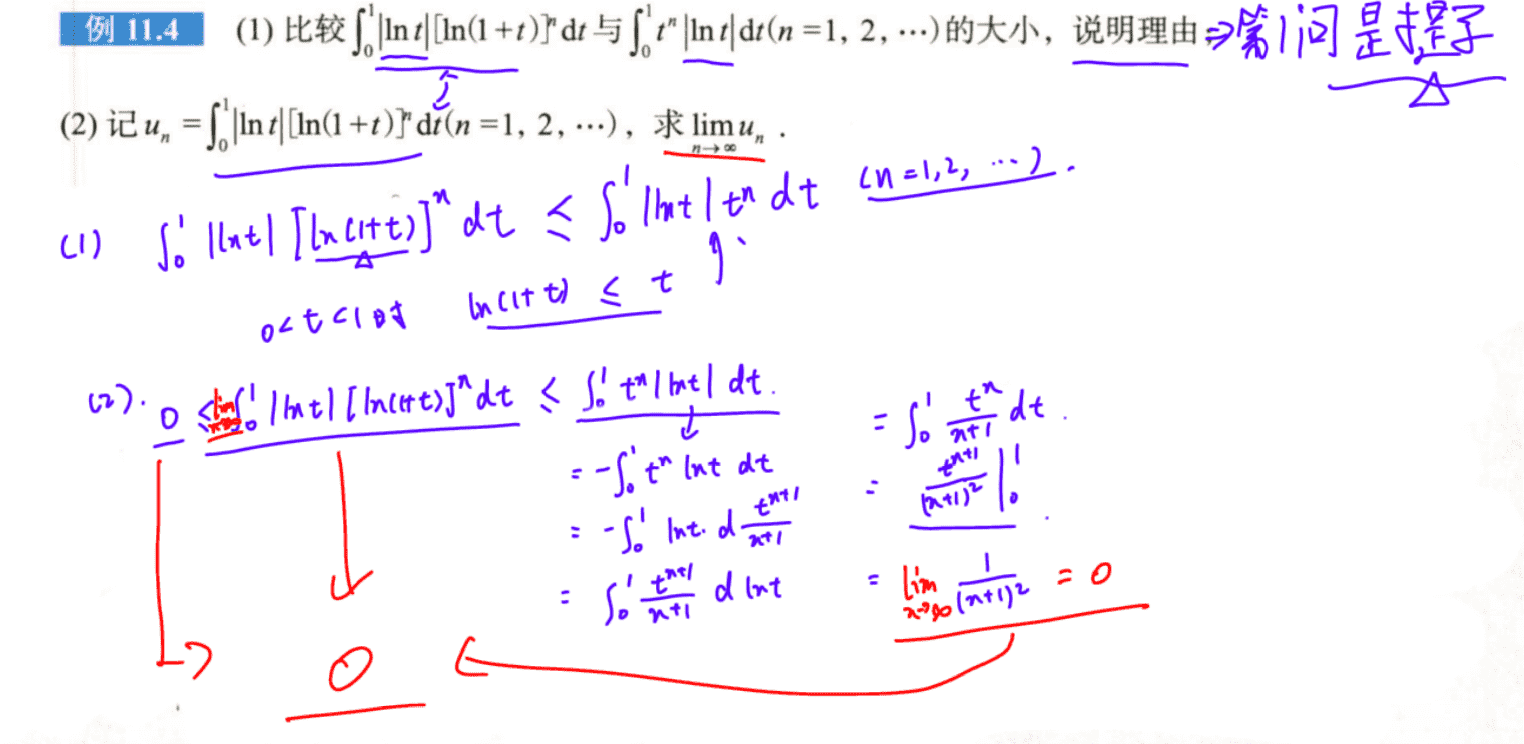 例 11.4 (1) 比较∫₀¹|ln t|[ln(1+t)]ⁿdt与∫₀¹tⁿ|ln t|dt(n=1, 2, …)的大小，说明理由⇒第1问是提示
(2) 记uₙ=∫₀¹|ln t|[ln(1+t)]ⁿdt(n=1, 2, …)，求lim_{n→∞}uₙ.
(1) ∫₀¹|lnt|[ln(1+t)]ⁿdt ≤ ∫₀¹|lnt|tⁿdt (n=1,2, …).
0<t<1时 ln(1+t) ≤ t
(2). 0 ≤ lim_{n→∞}∫₀¹|lnt|[ln(1+t)]ⁿdt ≤ ∫₀¹tⁿ|lnt|dt.
= -∫₀¹tⁿlnt dt
= -∫₀¹lnt·d tⁿ⁺¹/(n+1)
= ∫₀¹ tⁿ⁺¹/(n+1) d lnt
= ∫₀¹ tⁿ/(n+1) dt.
= tⁿ⁺¹/(n+1)² |₀¹.
= lim_{n→∞} 1/(n+1)² = 0
0